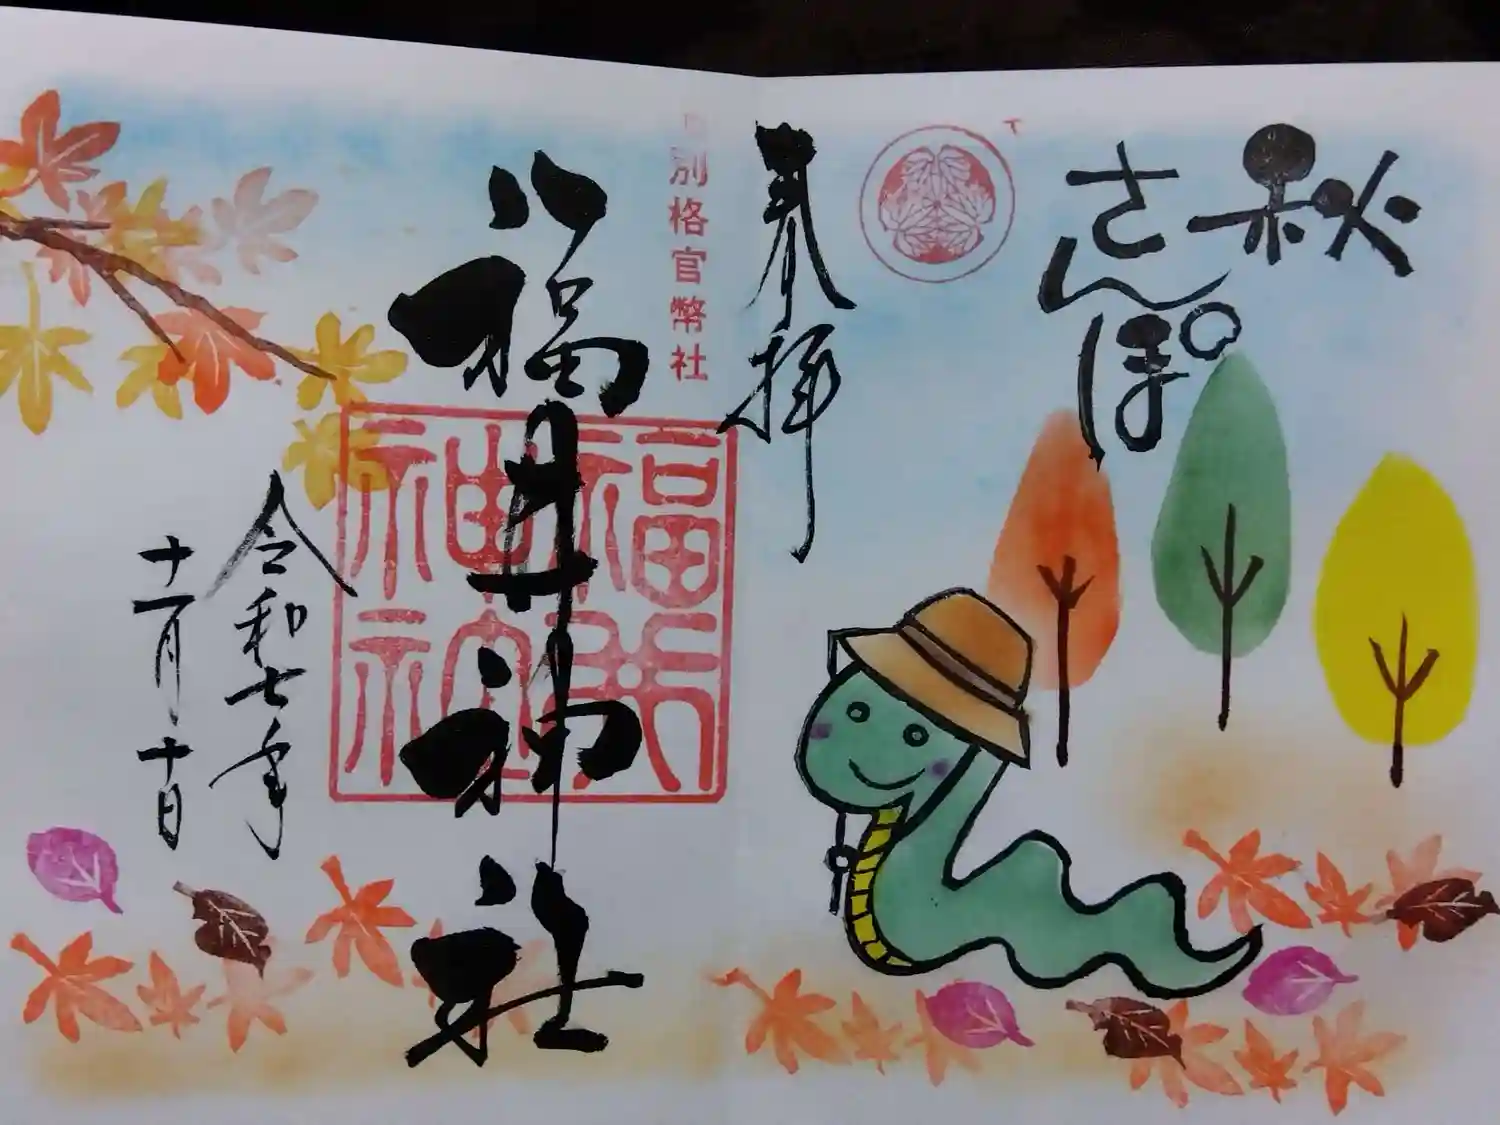 秋
さんぽ
奉拝
別格官幣社
福井神社
福井
神社
令和七年
十一月十日